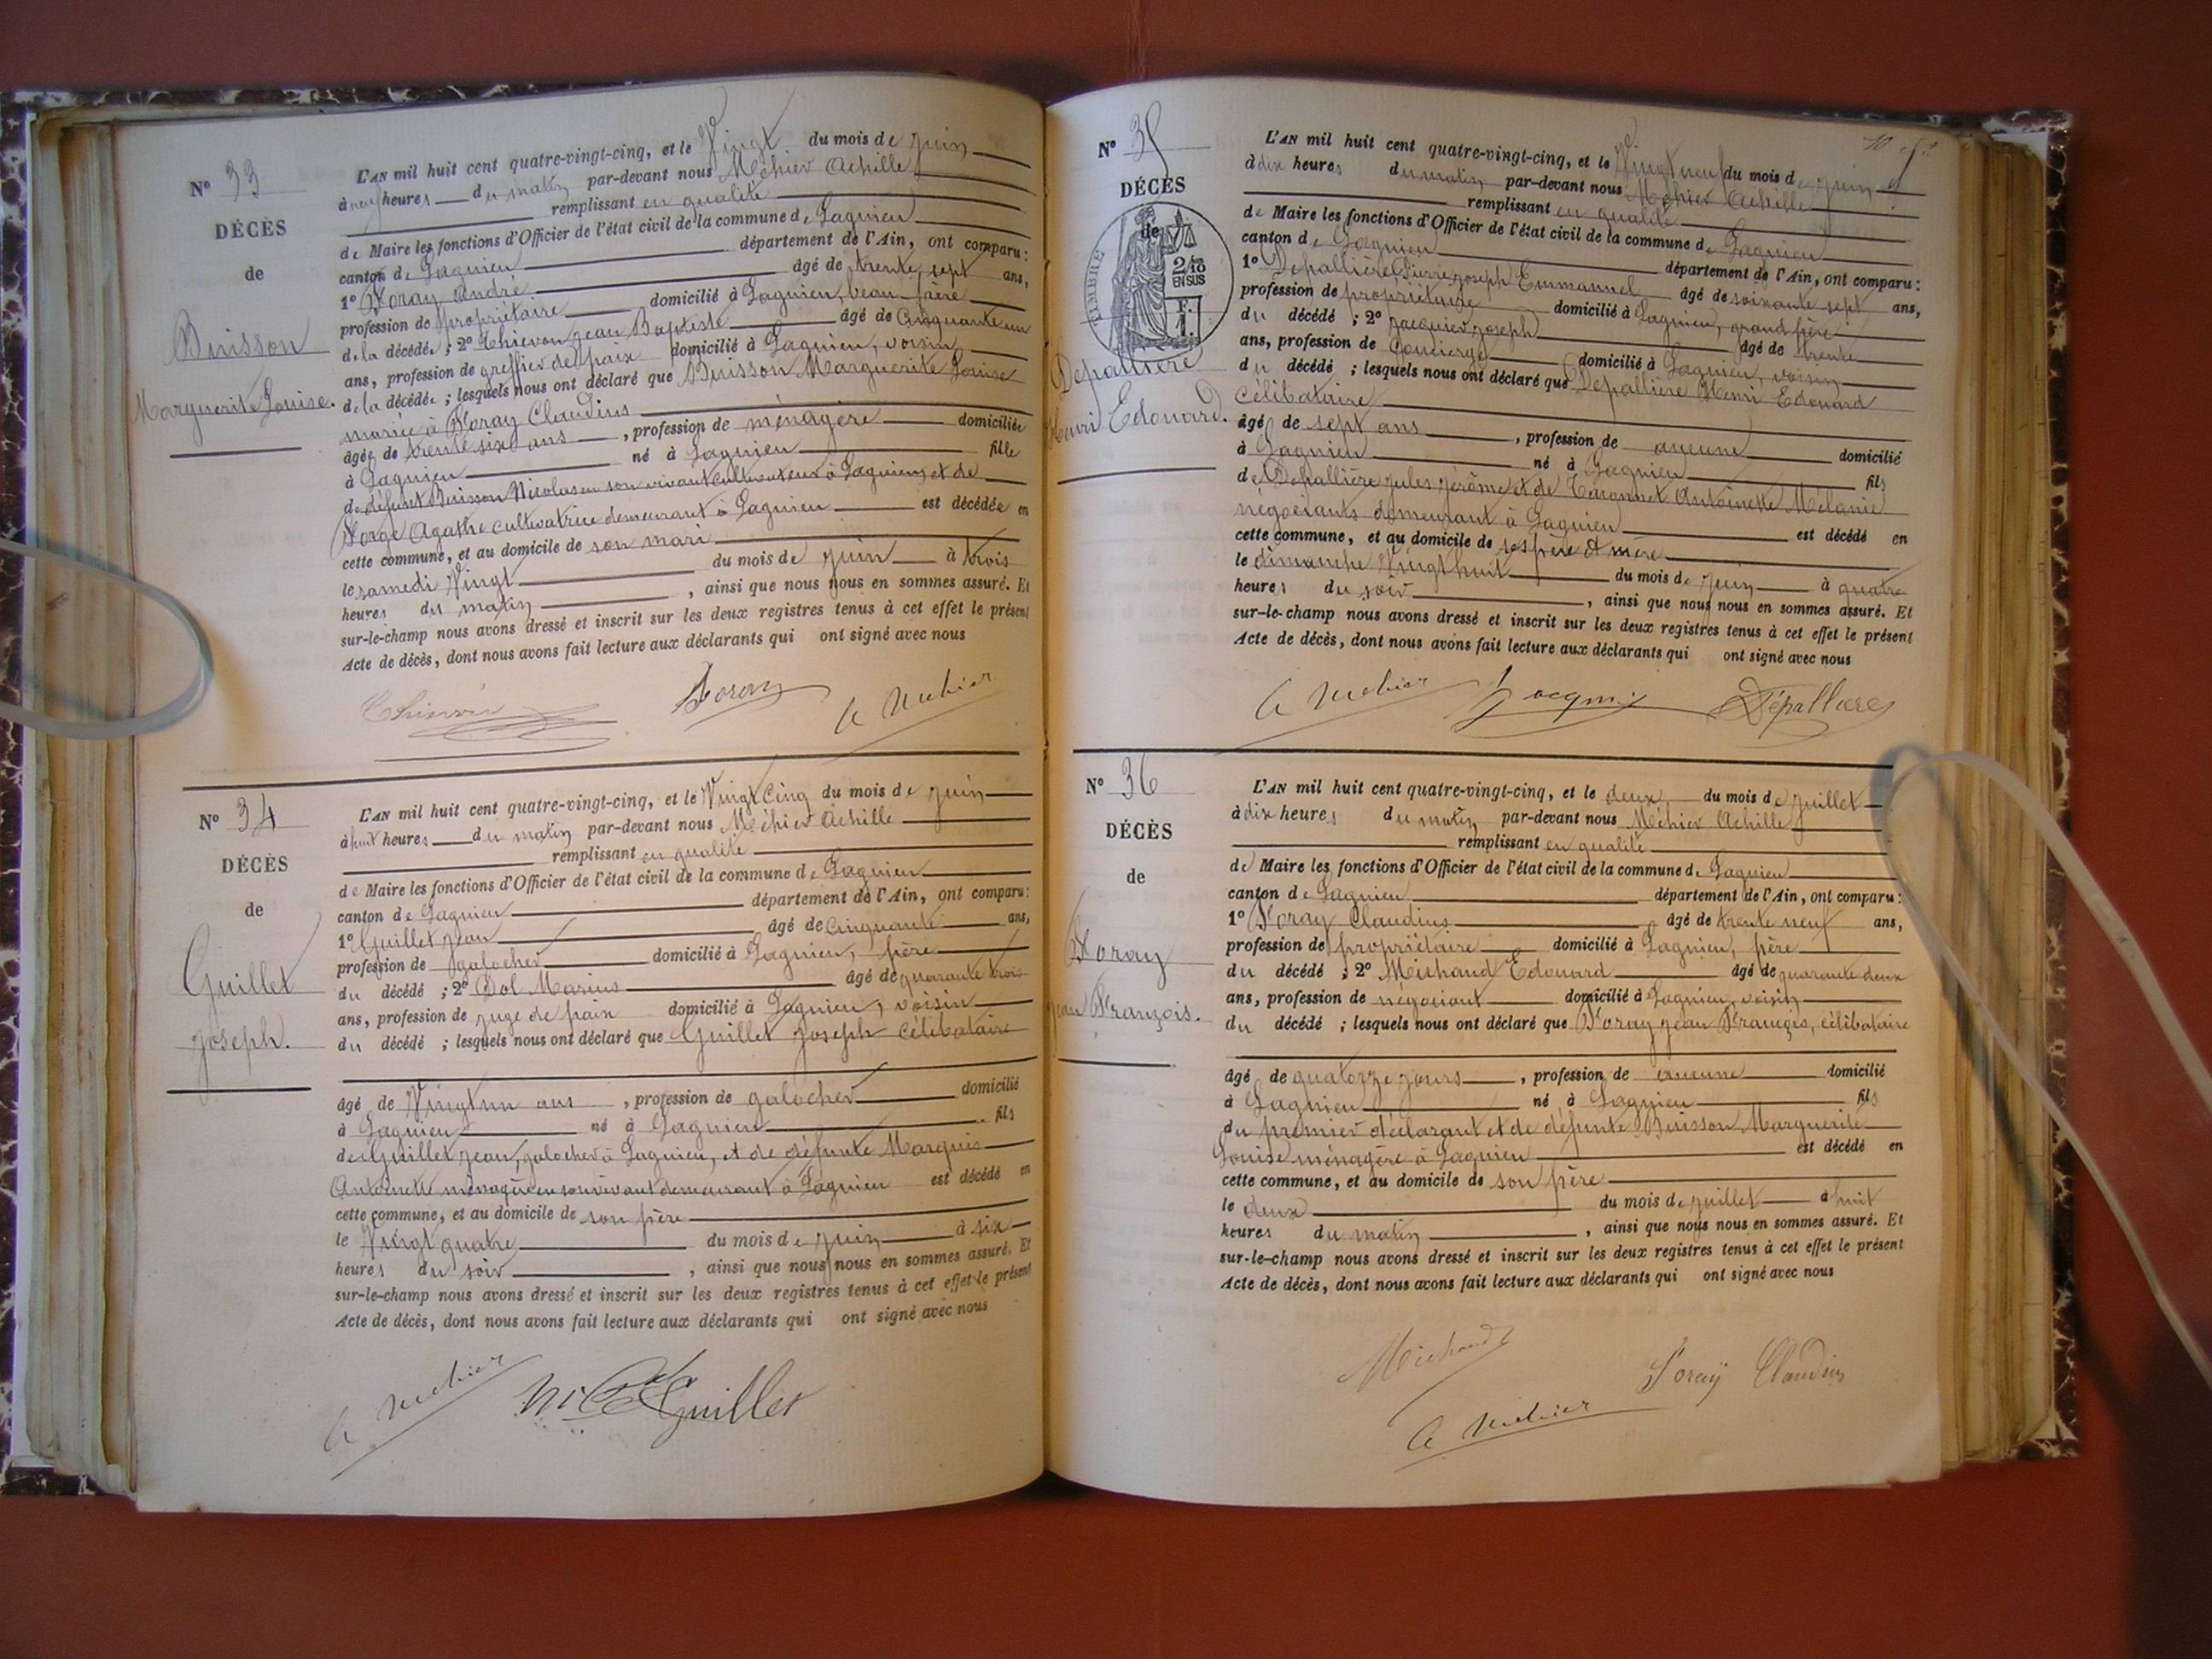 N° 33
DÉCÈS
de
Buisson
Marguerite Louise.
L'AN mil huit cent quatre-vingt-cinq, et le Vingt du mois de juin
à neuf heures du matin par-devant nous Méhier Achille
remplissant en qualité
de Maire les fonctions d'Officier de l'état civil de la commune de Lagnieu
canton de Lagnieu département de l'Ain, ont comparu:
1° Foray André âgé de trente sept ans,
profession de propriétaire domicilié à Lagnieu, beau-frère
de la décédée; 2° Thievon Jean Baptiste âgé de Cinquante un
ans, profession de greffier de paix domicilié à Lagnieu, voisin
de la décédée; lesquels nous ont déclaré que Buisson Marguerite Louise
mariée à Foray Claudius
âgée de trente six ans, profession de ménagère domiciliée
à Lagnieu né à Lagnieu fille
de défunt Buisson Nicolas en son vivant cultivateur à Lagnieu, et de
Agathe cultivatrice demeurant à Lagnieu est décédée en
cette commune, et au domicile de son mari
le samedi Vingt du mois de juin à trois
heures du matin, ainsi que nous nous en sommes assuré. Et
sur-le-champ nous avons dressé et inscrit sur les deux registres tenus à cet effet le présent
Acte de décès, dont nous avons fait lecture aux déclarants qui ont signé avec nous
Foray A Mehier
N° 34
DÉCÈS
de
Guillet
Joseph.
L'AN mil huit cent quatre-vingt-cinq, et le Vingt Cinq du mois de juin
à huit heures du matin par-devant nous Méhier Achille
remplissant en qualité
de Maire les fonctions d'Officier de l'état civil de la commune de Lagnieu
canton de Lagnieu département de l'Ain, ont comparu:
1° Guillet Jean âgé de Cinquante ans,
profession de galocher domicilié à Lagnieu, père
du décédé; 2° Dol Marius âgé de quarante trois
ans, profession de juge de paix domicilié à Lagnieu, voisin
du décédé; lesquels nous ont déclaré que Guillet Joseph célibataire
âgé de Vingt un ans, profession de galocher domicilié
à Lagnieu né à Lagnieu fils
de Guillet Jean, galocher à Lagnieu, et de défunte Marquis
Antoinette ménagère en son vivant demeurant à Lagnieu est décédé en
cette commune, et au domicile de son père
le Vingt quatre du mois de juin à six
heures du soir, ainsi que nous nous en sommes assuré. Et
sur-le-champ nous avons dressé et inscrit sur les deux registres tenus à cet effet le présent
Acte de décès, dont nous avons fait lecture aux déclarants qui ont signé avec nous
A Mehier Guillet
N° 35
DÉCÈS
de
TIMBRE
2/10
EN SUS
F.
1.
Depallière
Henri Edouard.
L'AN mil huit cent quatre-vingt-cinq, et le Vingt neuf du mois de juin
à dix heures du matin par-devant nous Méhier Achille
remplissant en qualité
de Maire les fonctions d'Officier de l'état civil de la commune de Lagnieu
canton de Lagnieu département de l'Ain, ont comparu:
1° Depallière Pierre Joseph Emmanuel âgé de soixante sept ans,
profession de propriétaire domicilié à Lagnieu, grand père
du décédé; 2° Jacquier Joseph âgé de trente
ans, profession de Concierge domicilié à Lagnieu, voisin
du décédé; lesquels nous ont déclaré que Depallière Henri Edouard
célibataire
âgé de sept ans, profession de aucune domicilié
à Lagnieu né à Lagnieu fils
de Depallière Jules Jérôme et de Antoinette Mélanie
négociants demeurant à Lagnieu est décédé en
cette commune, et au domicile de ses père et mère
le dimanche Vingt huit du mois de juin à quatre
heures du soir, ainsi que nous nous en sommes assuré. Et
sur-le-champ nous avons dressé et inscrit sur les deux registres tenus à cet effet le présent
Acte de décès, dont nous avons fait lecture aux déclarants qui ont signé avec nous
A Mehier Dépallière
N° 36
DÉCÈS
de
Foray
Jean François.
L'AN mil huit cent quatre-vingt-cinq, et le deux du mois de juillet
à dix heures du matin par-devant nous Méhier Achille
remplissant en qualité
de Maire les fonctions d'Officier de l'état civil de la commune de Lagnieu
canton de Lagnieu département de l'Ain, ont comparu:
1° Foray Claudius âgé de trente neuf ans,
profession de propriétaire domicilié à Lagnieu, père
du décédé; 2° Michaud Edouard âgé de quarante deux
ans, profession de négociant domicilié à Lagnieu, voisin
du décédé; lesquels nous ont déclaré que Foray Jean François, célibataire
âgé de quatorze jours, profession de aucune domicilié
à Lagnieu né à Lagnieu fils
du premier déclarant et de défunte Buisson Marguerite
Louise ménagère à Lagnieu est décédé en
cette commune, et au domicile de son père
le deux du mois de juillet à huit
heures du matin, ainsi que nous nous en sommes assuré. Et
sur-le-champ nous avons dressé et inscrit sur les deux registres tenus à cet effet le présent
Acte de décès, dont nous avons fait lecture aux déclarants qui ont signé avec nous
Michaud Foray Claudius
A Mehier